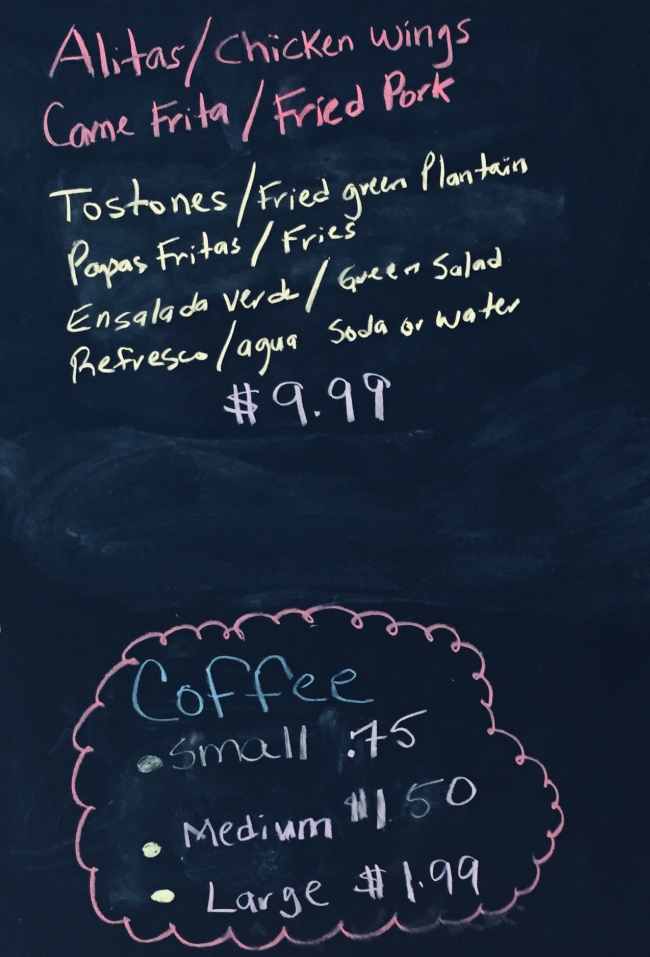 Alitas/Chicken wings
Carne Frita/Fried Pork
Tostones/Fried green Plantain
Papas Fritas/Fries
Ensalada verde/Green Salad
Refresco/agua Soda or water
$9.99
Coffee
• Small .75
• Medium $1.50
• Large $1.99